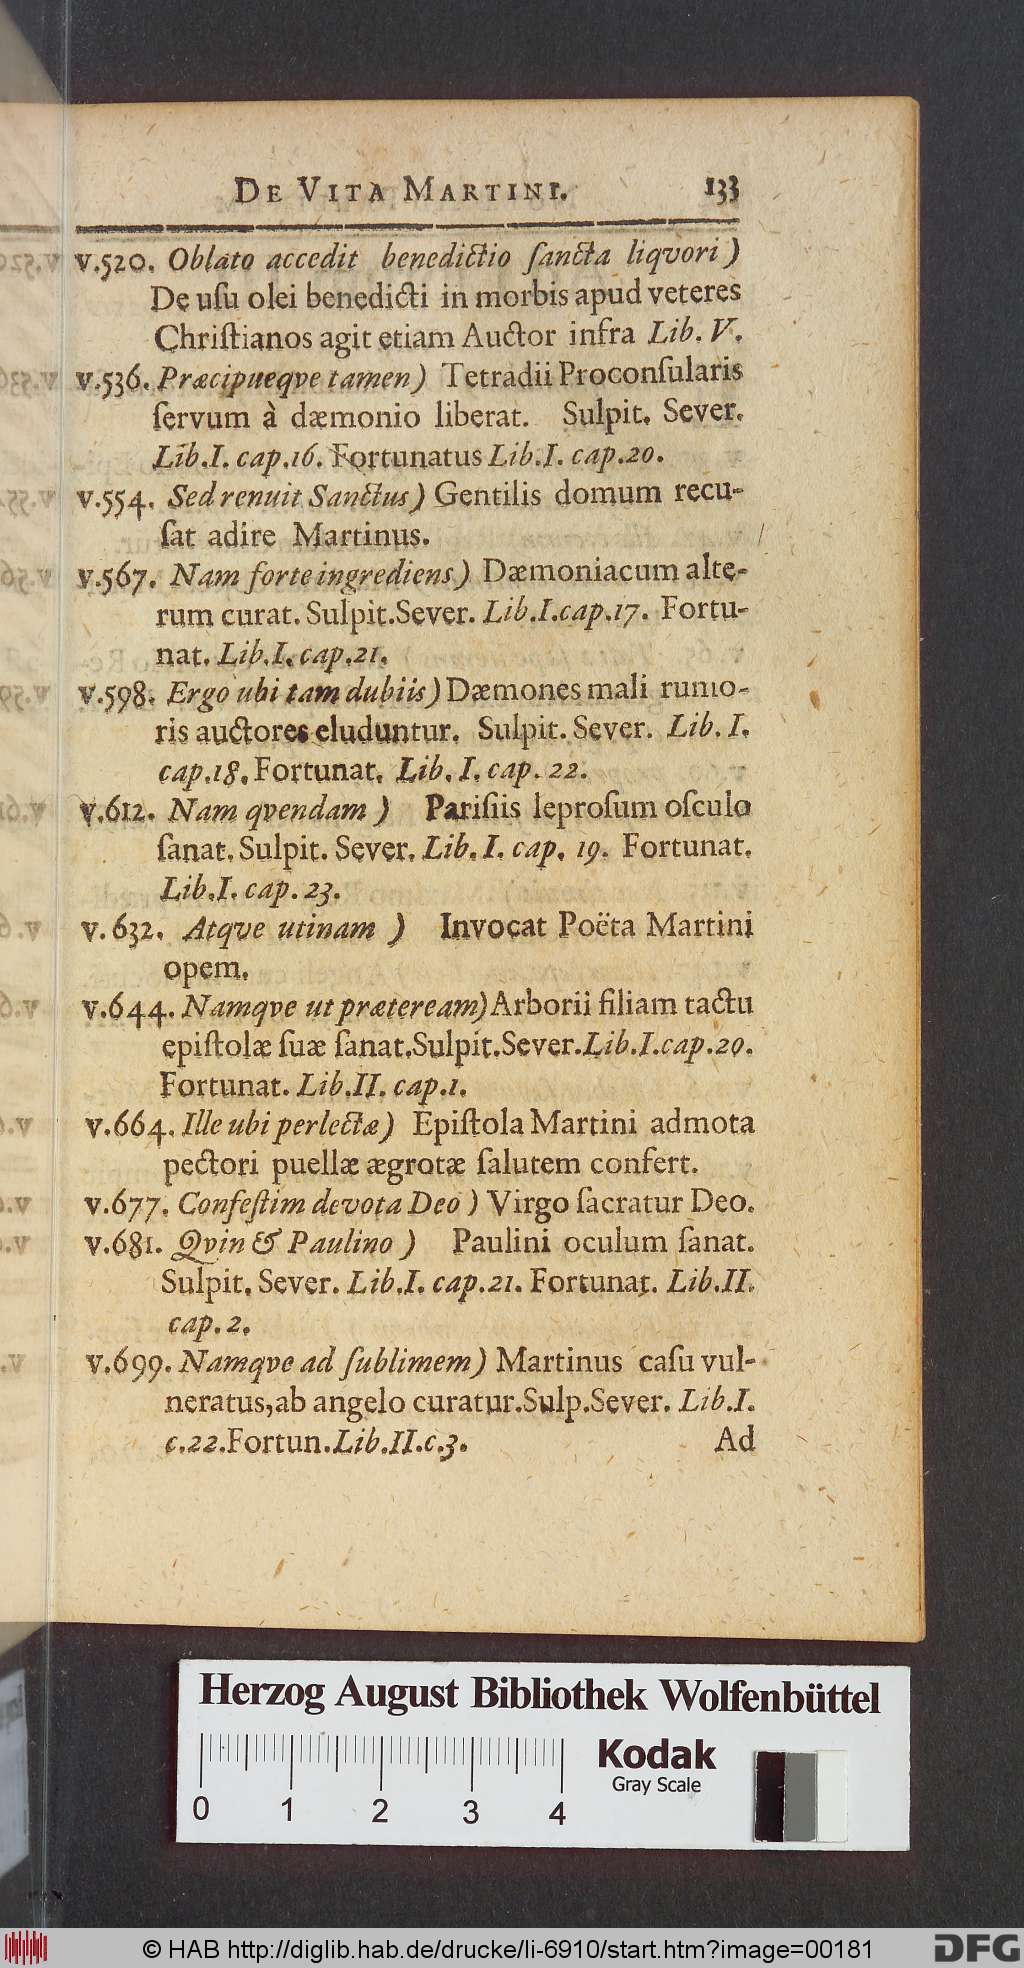 DE VITA MARTINI. 133
v.520. Oblato accedit benedictio ſancta liqvori)
De uſu olei benedicti in morbis apud veteres
Chriſtianos agit etiam Auctor infra Lib. V.
v.536. Præcipueqve tamen) Tetradii Proconſularis
ſervum à dæmonio liberat. Sulpit. Sever.
Lib.I. cap.16. Fortunatus Lib.I. cap.20.
v.554. Sed renuit Sanctus) Gentilis domum recu-
ſat adire Martinus.
v.567. Nam forte ingrediens) Dæmoniacum alte-
rum curat. Sulpit.Sever. Lib.I.cap.17. Fortu-
nat. Lib.I.cap.21.
v.598. Ergo ubi tam dubiis) Dæmones mali rumo-
ris auctores eluduntur. Sulpit. Sever. Lib. I.
cap.18. Fortunat. Lib. I. cap. 22.
v.612. Nam qvendam) Pariſiis leproſum oſculo
ſanat. Sulpit. Sever. Lib. I. cap. 19. Fortunat.
Lib.I. cap. 23.
v. 632. Atqve utinam) Invocat Poëta Martini
opem.
v.644. Namqve ut præteream) Arborii filiam tactu
epiſtolæ ſuæ ſanat.Sulpit.Sever.Lib.I.cap.20.
Fortunat. Lib.II. cap.1.
v.664. Ille ubi perlectæ) Epiſtola Martini admota
pectori puellæ ægrotæ ſalutem confert.
v.677. Confeſtim devota Deo) Virgo ſacratur Deo.
v.681. Qvin & Paulino) Paulini oculum ſanat.
Sulpit. Sever. Lib.I. cap.21. Fortunat. Lib.II.
cap. 2.
v.699. Namqve ad ſublimem) Martinus caſu vul-
neratus,ab angelo curatur.Sulp.Sever. Lib.I.
c.22.Fortun.Lib.II.c.3. Ad
Herzog August Bibliothek Wolfenbüttel
Kodak
Gray Scale
0 1 2 3 4
© HAB http://diglib.hab.de/drucke/li-6910/start.htm?image=00181
DFG